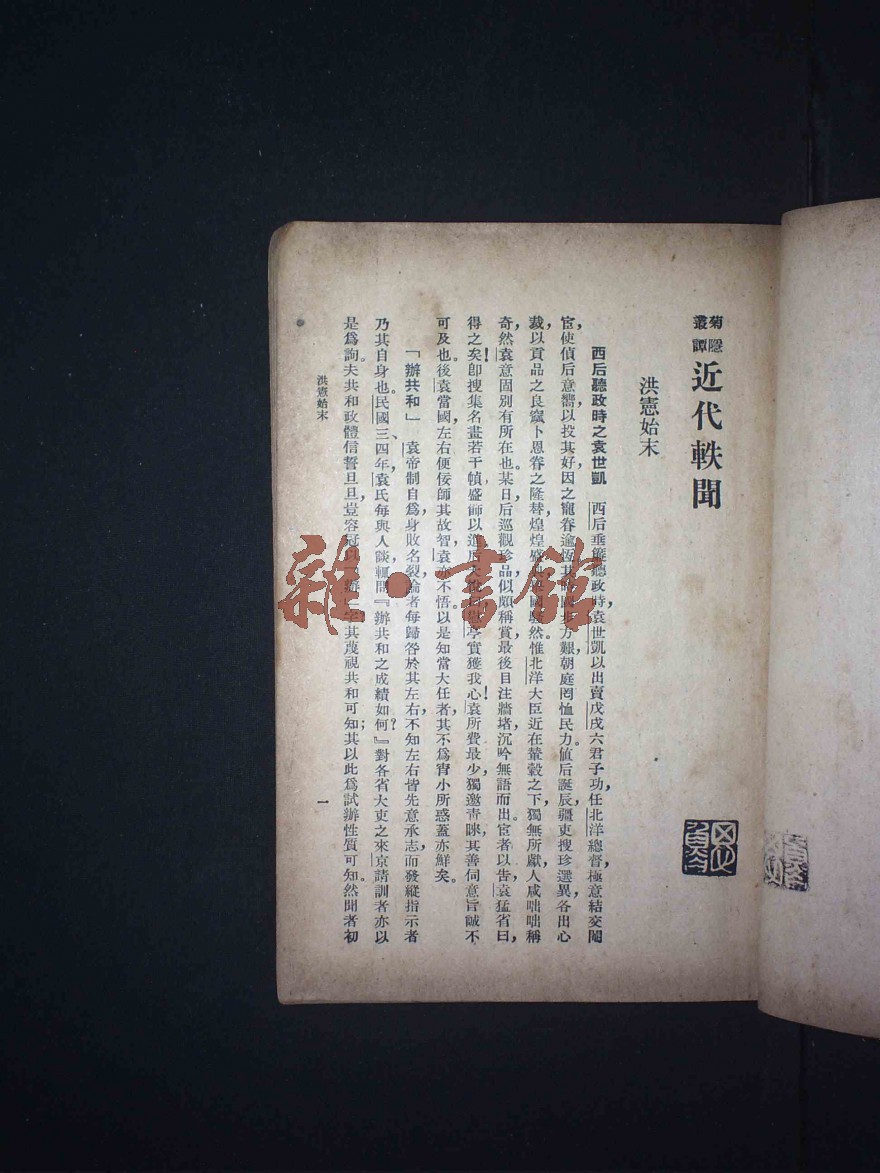 菊隱叢譚
近代軼聞
洪憲始末
西后聽政時之袁世凱　西后垂簾聽政時，袁世凱以出賣戊戌六君子功，任北洋總督，極意結交閹
宦，使偵后意嚮以投其好，因之寵眷逾恆。其時國步方艱，朝庭罔恤民力。值后誕辰，疆吏搜珍選異，各出心
裁，以貢品之良窳卜恩眷之隆替，煌煌盛典，舉國騷然。惟北洋大臣近在輦轂之下，獨無所獻，人咸咄咄稱
奇，然袁意固別有所在也。某日，后巡觀珍品，似頗稱賞，最後目注牆堵，沉吟無語而出。宦者以告，袁猛省曰，
得之矣！卽搜集名畫若干幀，盛飾以進。后大悅曰，慰亭實獲我心！袁所費最少，獨邀靑睞，其善伺意旨，誠不
可及也。後袁當國，左右便佞師其故智，袁亦不悟。以是知當大任者，其不爲宵小所惑，蓋亦鮮矣。
「辦共和」　袁帝制自爲，身敗名裂，論者每歸咎於其左右，不知左右皆先意承志，而發縱指示者
乃其自身也。民國三、四年，袁氏每與人談，輒問『辦共和之成績如何？』對各省大吏之來京請訓者，亦以
是爲詢。夫共和政體，信誓旦旦，豈容冠以「辦」字，其蔑視共和可知；其以此爲試辦性質可知。然聞者初
洪憲始末
一
雜·書館